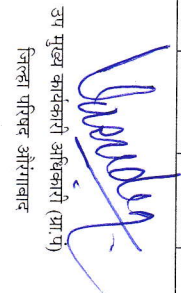 उप मुख्य कार्यकारी अधिकारी (सा.प्र)
जिल्हा परिषद औरंगाबाद